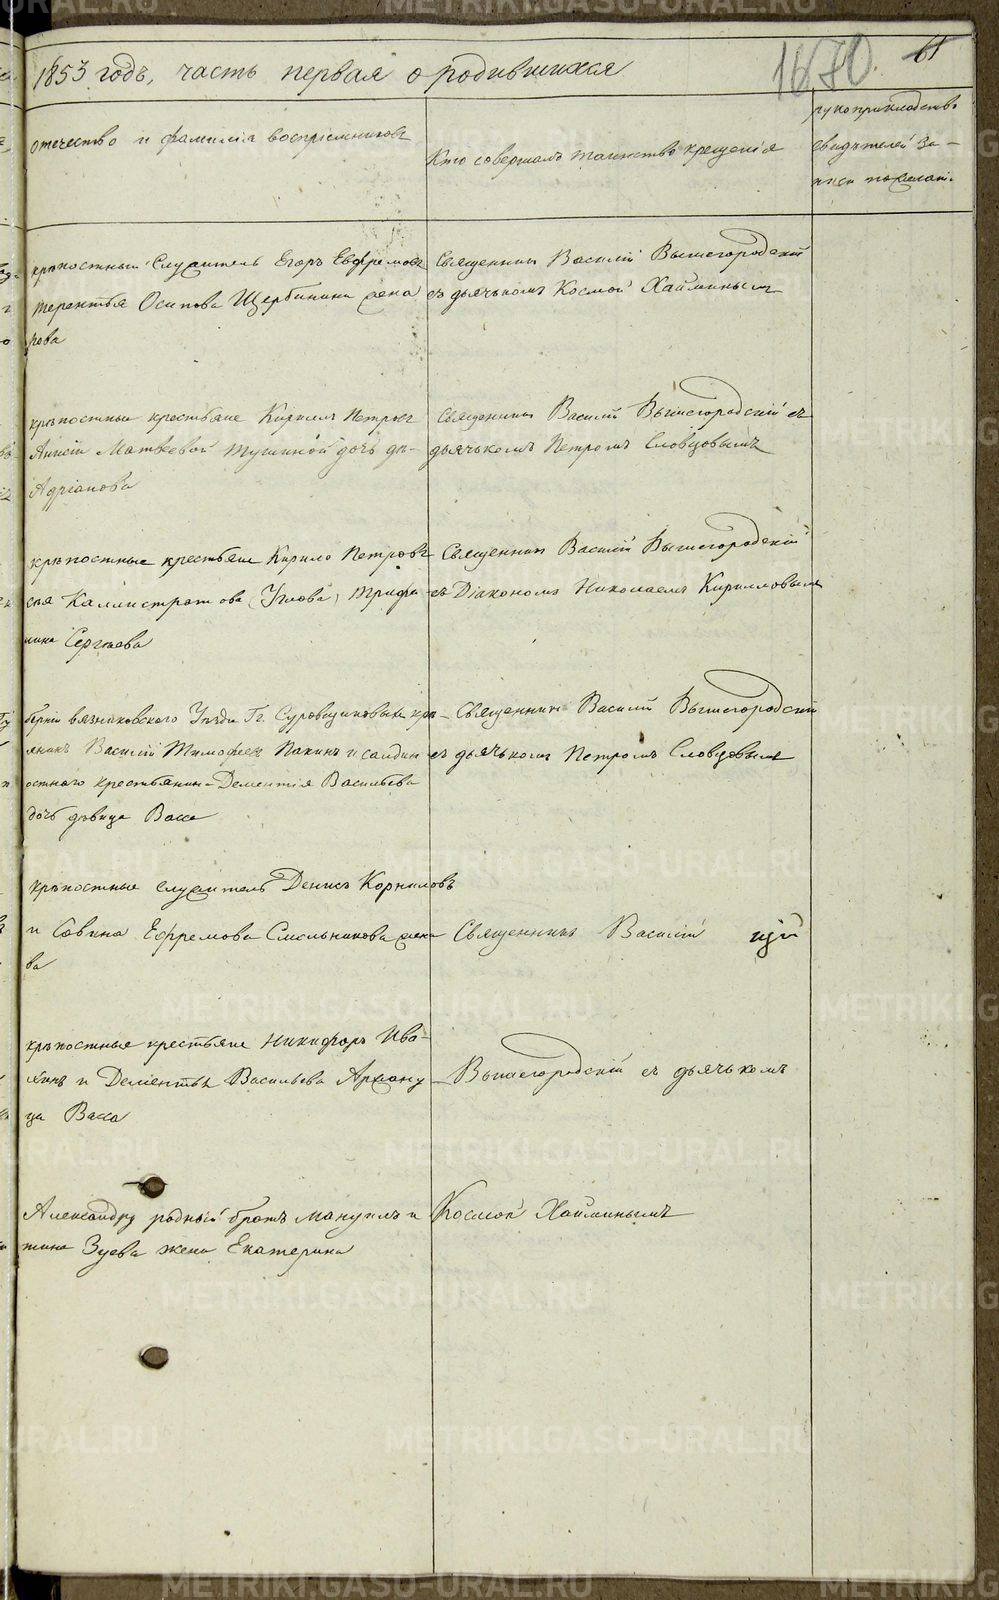 1853 годъ, часть первая о родившихся
1670. 61
отечество и фамилія воспріемниковъ
Кто совершалъ таинство крещенія
рукоприкладство
свидѣтелей за-
писи по желан.
крѣпостный Служитель Егоръ Ефремовъ
Терентья Осипова Щербинина жена
рова
Священникъ Василій Вышегородскій
съ дьячькомъ Космой Хайминымъ
крѣпостные крестьяне Кирилъ Петровъ
Анисіи Матвеевой Тушиной дочь дѣ-
Адріанова
Священникъ Василій Вышегородскій съ
дьячькомъ Петромъ Словцовымъ
крѣпостные крестьяне Кирило Петровъ
Калистратова (Углова) Трифи
Сергѣева
Священникъ Василій Вышегородскій
съ Діакономъ Николаемъ Кирилловымъ
берніи вязниковскаго Уѣзда Гг. Суровщиковыхъ крѣ-
Василій Тимофеевъ Пакинъ и
остнаго крестьянина Дементія Васильева
дочь дѣвица Васса
Священникъ Василій Вышегородскій
съ дьячькомъ Петромъ Словцовымъ
крѣпостные служитель Денисъ Корниловъ
и Савина Ефремова Смольникова жена
ва
Священникъ Василій
крѣпостныя крестьяне Никифоръ Ива-
и Дементья Васильева
ца Васса
Вышегородскій съ дьячькомъ
Александру родный братъ Мануилъ и
тина Зуева жена Екатерина
Космой Хайминымъ
METRIKI.GASO-URAL.RU